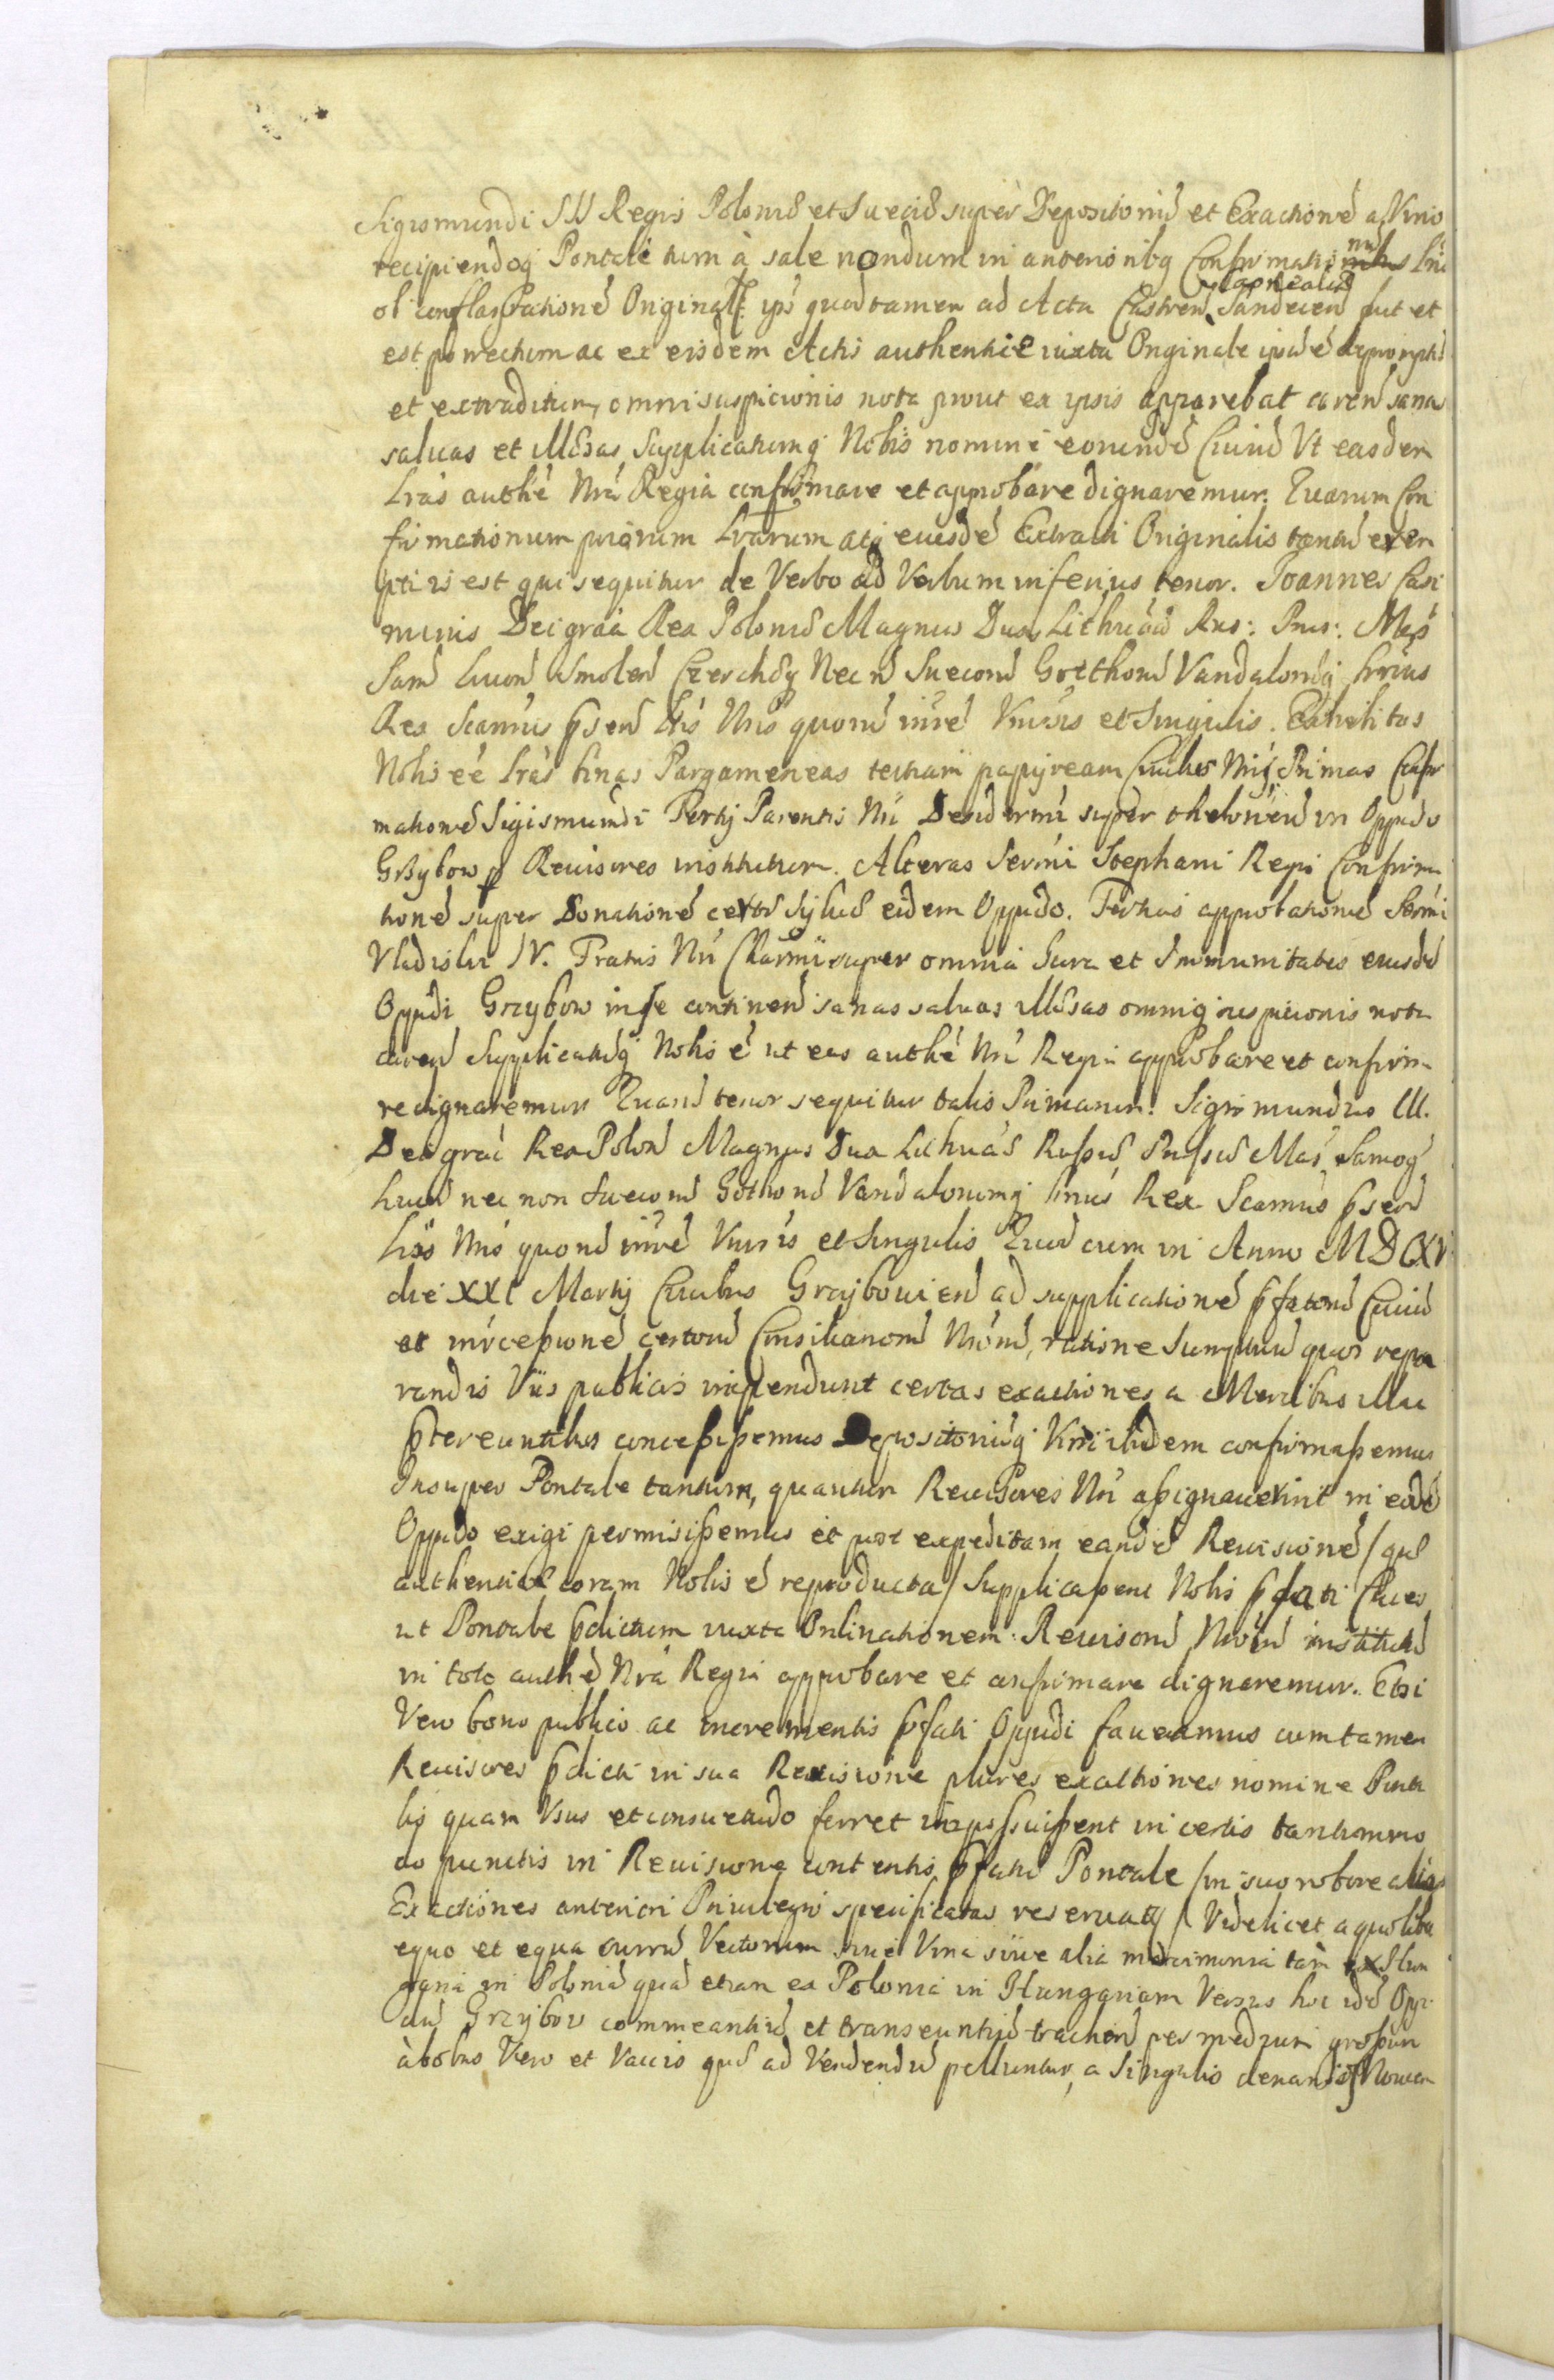 Sigismundi III Regis Poloniæ et Sueciæ super Depositoriũ et Exactionẽ a Vino
recipiendoq Pontali tum à sale nondum in anterioribq Confirmationibus
ob conflagrationẽ Originał: quod tamen ad Acta Castreñ Capitealia Sandeceñ fuit et
est porrectum ac ex eisdem Actis authentice iuxta Originale
et extraditum, omni suspicionis nota prout ex ipsis apparebat careñ sanas
saluas et illæsas Supplicatumq Nobis nomine eorundẽ Ciuiũ Vt easdem
Lrãs authẽ Nrã Regia confirmare et approbare dignaremur. Quarum Con
firmationum priorum Lrarum atq eiusdẽ Extracti Originalis
pti is est qui sequitur de Verbo ad Verbum inferius tenor. Joannes Casi
mirus Dei grãa Rex Poloniæ Magnus Dux Lithuãæ Rus: Prus: Mas
Sam Liuoñ Smoleñ Czerchæq Nec ñ Suecorũ Gotthorũ Vandalorũq hrius
Rex Scamus pseñ Lris Nris quorũ intẽ Vniũsis et Singulis. Exhibitas
Nobis eẽ Lrãs binas Pargameneas tertiam papyream Primas Confir
mationẽ Sigismundi Tertij Parentis Nri Desidermi super theloneũ in Oppido
Grzybow p Reuisores institutum. Alteras Sermi Stephani Regis Confirma
tionẽ super Donationẽ certæ Syluæ eidem Oppido. Tertias approbationẽ Sermi
Vladislai IV. Fratris Nri Charmi super omnia Iura et Immunitates eiusdẽ
Oppidi Grzybow in se continẽ sanas saluas illæsas omniq suspicionis nota
careñ Supplicatũq Nobis ẽ ut eas authẽ Nrã Regia approbare et confirma
re dignaremur Quarũ tenor sequitur talis Primarum. Sigismundus III.
Dei grãi Rex Poloñ Magnus Dux Lithuãæ Russiæ Prussiæ Mas Samog
Liuoñ nec non Suecorũ Gothorũ Vandalorumq hrius Rex Scamus pseñ
Lris Nris quorũ intẽ Vniuris et Singulis Quod cum in Anno MDCXV
die XXI Martij Ciuibus Grzybouieñ ad supplicationẽ pfatorũ Ciuiũ
et intercessionẽ certorũ Consiliariorũ Nrorũ, ratione sumptuũ quos repa
randis Viis publicis impendunt certas exactiones a Mercibus illac
ptereuntibus concessissemus Depositoriũq Vini ibidem confirmassemus
Insuper Pontale tantum, quantum Reuisores Nri assignauerint in eodẽ
Oppido exigi permisissemus et post expeditam eandẽ Reuisionẽ / quæ
authentice coram Nobis ẽ reproducta / Supplicassent Nobis pfati Ciues
ut Pontale pdictum iuxta Ordinationem Reuisorũ Nrorũ institutũ
in toto authẽ Nrã Regia approbare et confirmare dignaremur. Etsi
Vero bono publico ac incrementis pfati Oppidi faueamus cum tamen
Reuisores pdicti in sua Reuisione plures exactiones nomine Ponta
lis quam Vsus et consuetudo ferret imposuissent in certis tantummo
do punctis in Reuisione contentis pfatũ Pontale / in suo robore alias
Exactiones anteriori Priuilegio specificatas reseruatq / Videlicet a quolibet
equo et equa curruũ Vectorum siue Vina siue alia mercimonia tam ex Hun
garia in Poloniã quã etiam ex Polonia in Hungariam Versus hoc idẽ Oppi
dũ Grzybow commeantiũ et transeuntiũ trahenũ per mediũ grossum
à bobus Vero et Vaccis quæ ad Vendendũ pelluntur, a singulis denarios Nouem